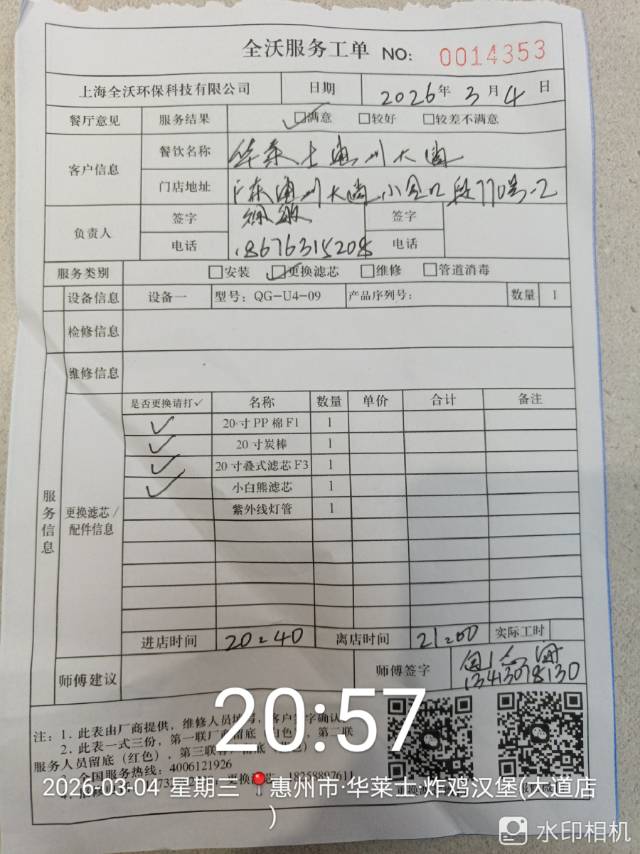 全沃服务工单 NO: 0014353
上海全沃环保科技有限公司 日期 2026年 3月 4日
餐厅意见 服务结果 ☑满意 □较好 □较差不满意
客户信息 餐饮名称 华莱士惠州大道
门店地址 广东惠州大道小金口段770号-2
负责人 签字 签字
电话 18676315208 电话
服务类别 □安装 ☑更换滤芯 □维修 □管道消毒
设备信息 设备一 型号: QG-U4-09 产品序列号: 数量 1
检修信息
维修信息
服务信息
更换滤芯/配件信息
是否更换请打✓ 名称 数量 单价 合计 备注
✓ 20寸PP棉F1 1
✓ 20寸炭棒 1
✓ 20寸叠式滤芯F3 1
✓ 小白熊滤芯 1
紫外线灯管 1
进店时间 20:40 离店时间 21:00 实际工时
师傅建议 师傅签字
13413078130
20:57
注: 1. 此表由厂商提供, 维修人员填写, 客户签字确认
2. 此表一式三份, 第一联厂商留底(白色), 第二联
服务人员留底(红色), 第三联
全国服务热线: 4006121926
更换滤芯 18258897611
2026-03-04 星期三 惠州市·华莱士·炸鸡汉堡(大道店
)
水印相机